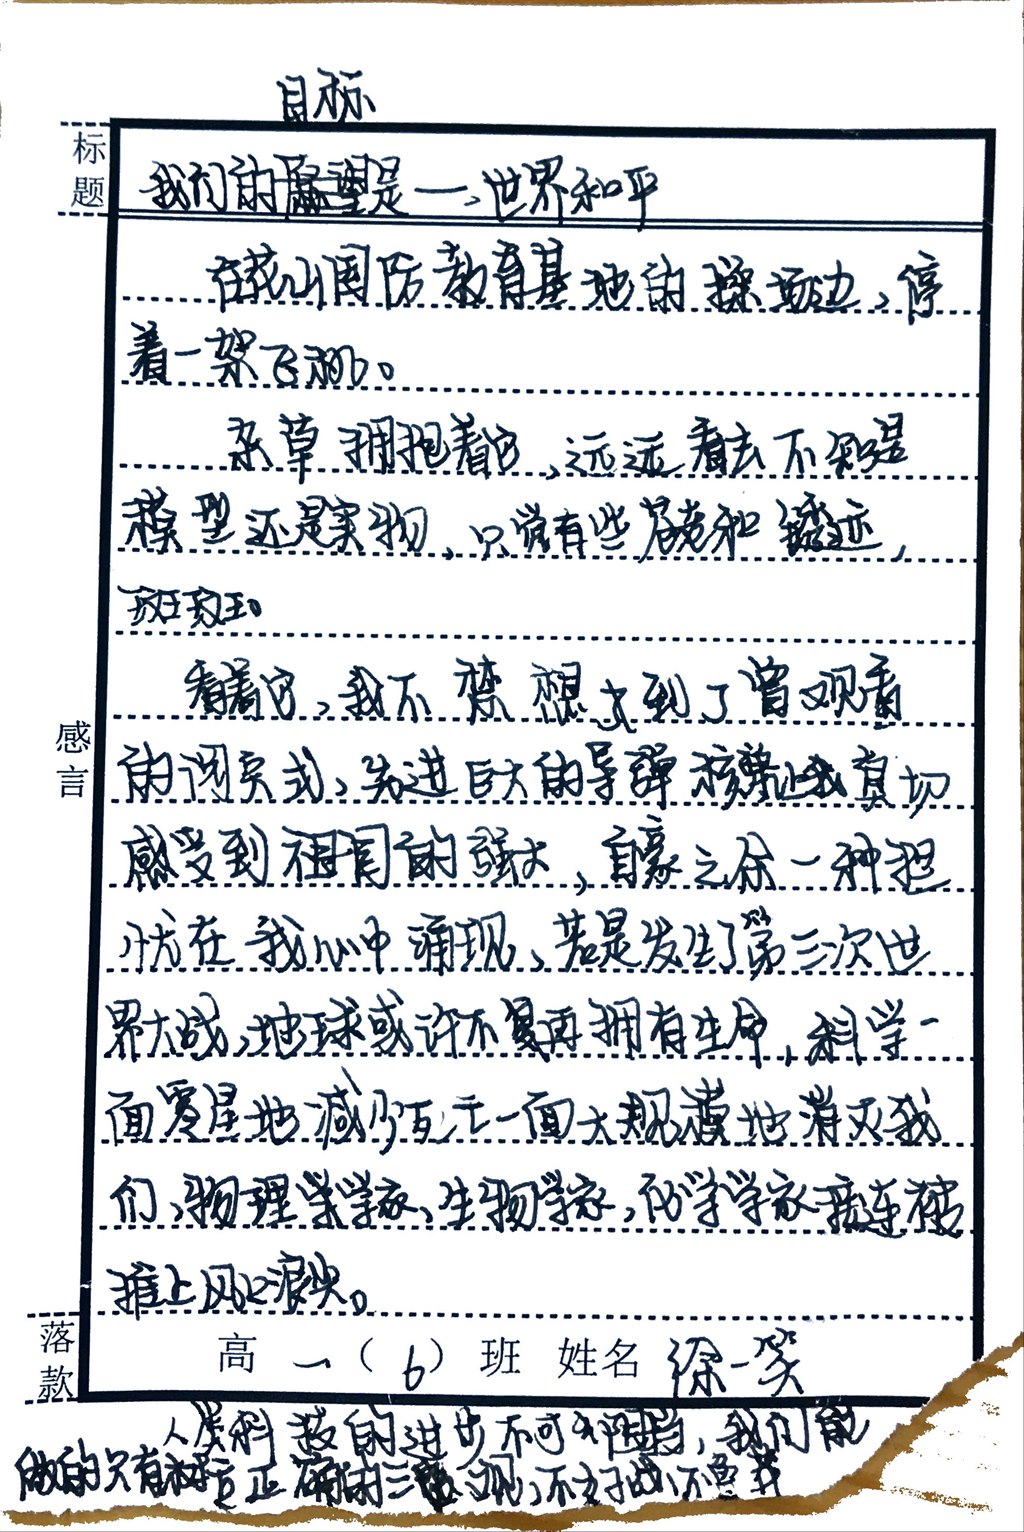 目标
标题
我们的愿望是一、世界和平
在花山国防教育基地的操场边、停
着一架飞机。
杂草拥抱着它，远远看去不知是
模型还是实物，只觉有些苍老和锈迹，
斑斑。
看着它，我不禁想到了曾观看
的阅兵式、先进巨大的导弹核弹让我真切
感受到祖国的强大，自豪之余一种担
忧在我心中涌现、若是发生了第三次世
界大战、地球或许不复再拥有生命，科学一
面零星地减少一面大规模地消灭我
们、物理学学家、生物学家，化学学家接连被
推上风口浪尖。
感言
落款
高一（6）班 姓名 徐一笑
人类科技的进步不可阻挡，我们能
做的只有树立正确的三观、不主战不